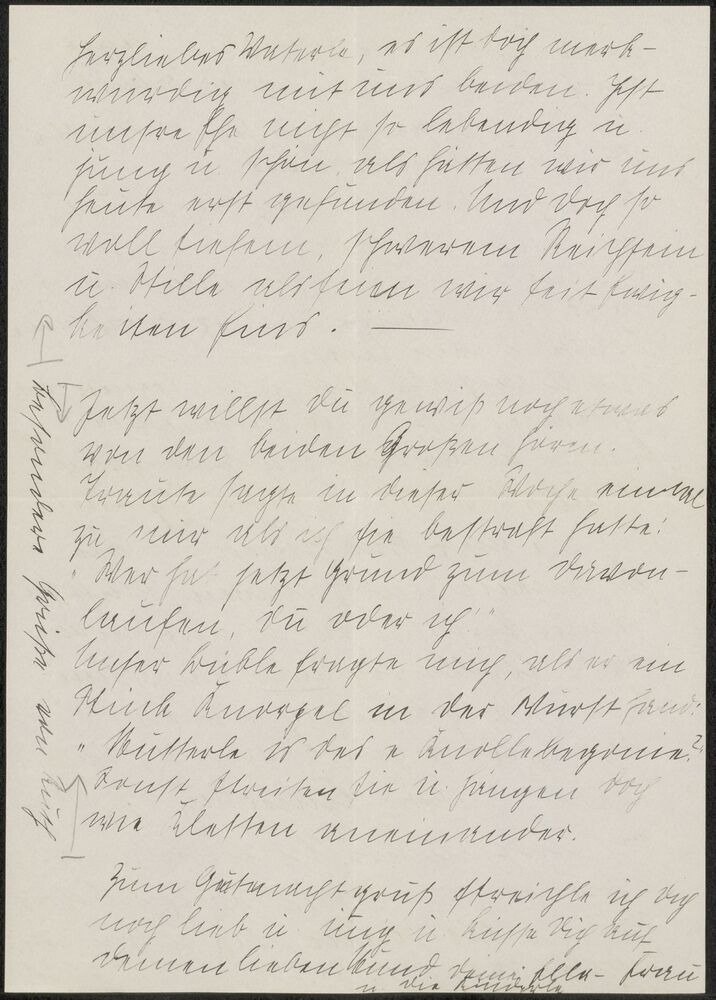 Herzliebes Vaterle, es ist doch merk-
würdig mit uns beiden. Ist
unsre Ehe nicht so lebendig u.
jung u. schön, als hätten wir uns
heute erst gefunden. Und doch so
voll tiefem, schwerem Reichtum
u. Stille als seien wir seit Ewig-
keiten Eins. —
Jetzt willst du gewiß noch etwas
von den beiden Großen hören.
Traute sagte in dieser Woche einmal
zu mir als ich sie bestraft hatte:
"Wer hat jetzt Grund zum davon-
laufen, du oder ich!"
Unser Buble fragte mich, als er ein
Stück Knorpel in der Wurst fand:
"Mutterle is des e Knollebegonie?"
Sonst streiten sie u. hängen doch
wie Kletten aneinander.
Zum Gutenachtgruß streichle ich dich
noch lieb u. u. küsse dich auf
deinen lieben Mund deine Ella-Frau
u. die Kinderle
Besondere Grüße von